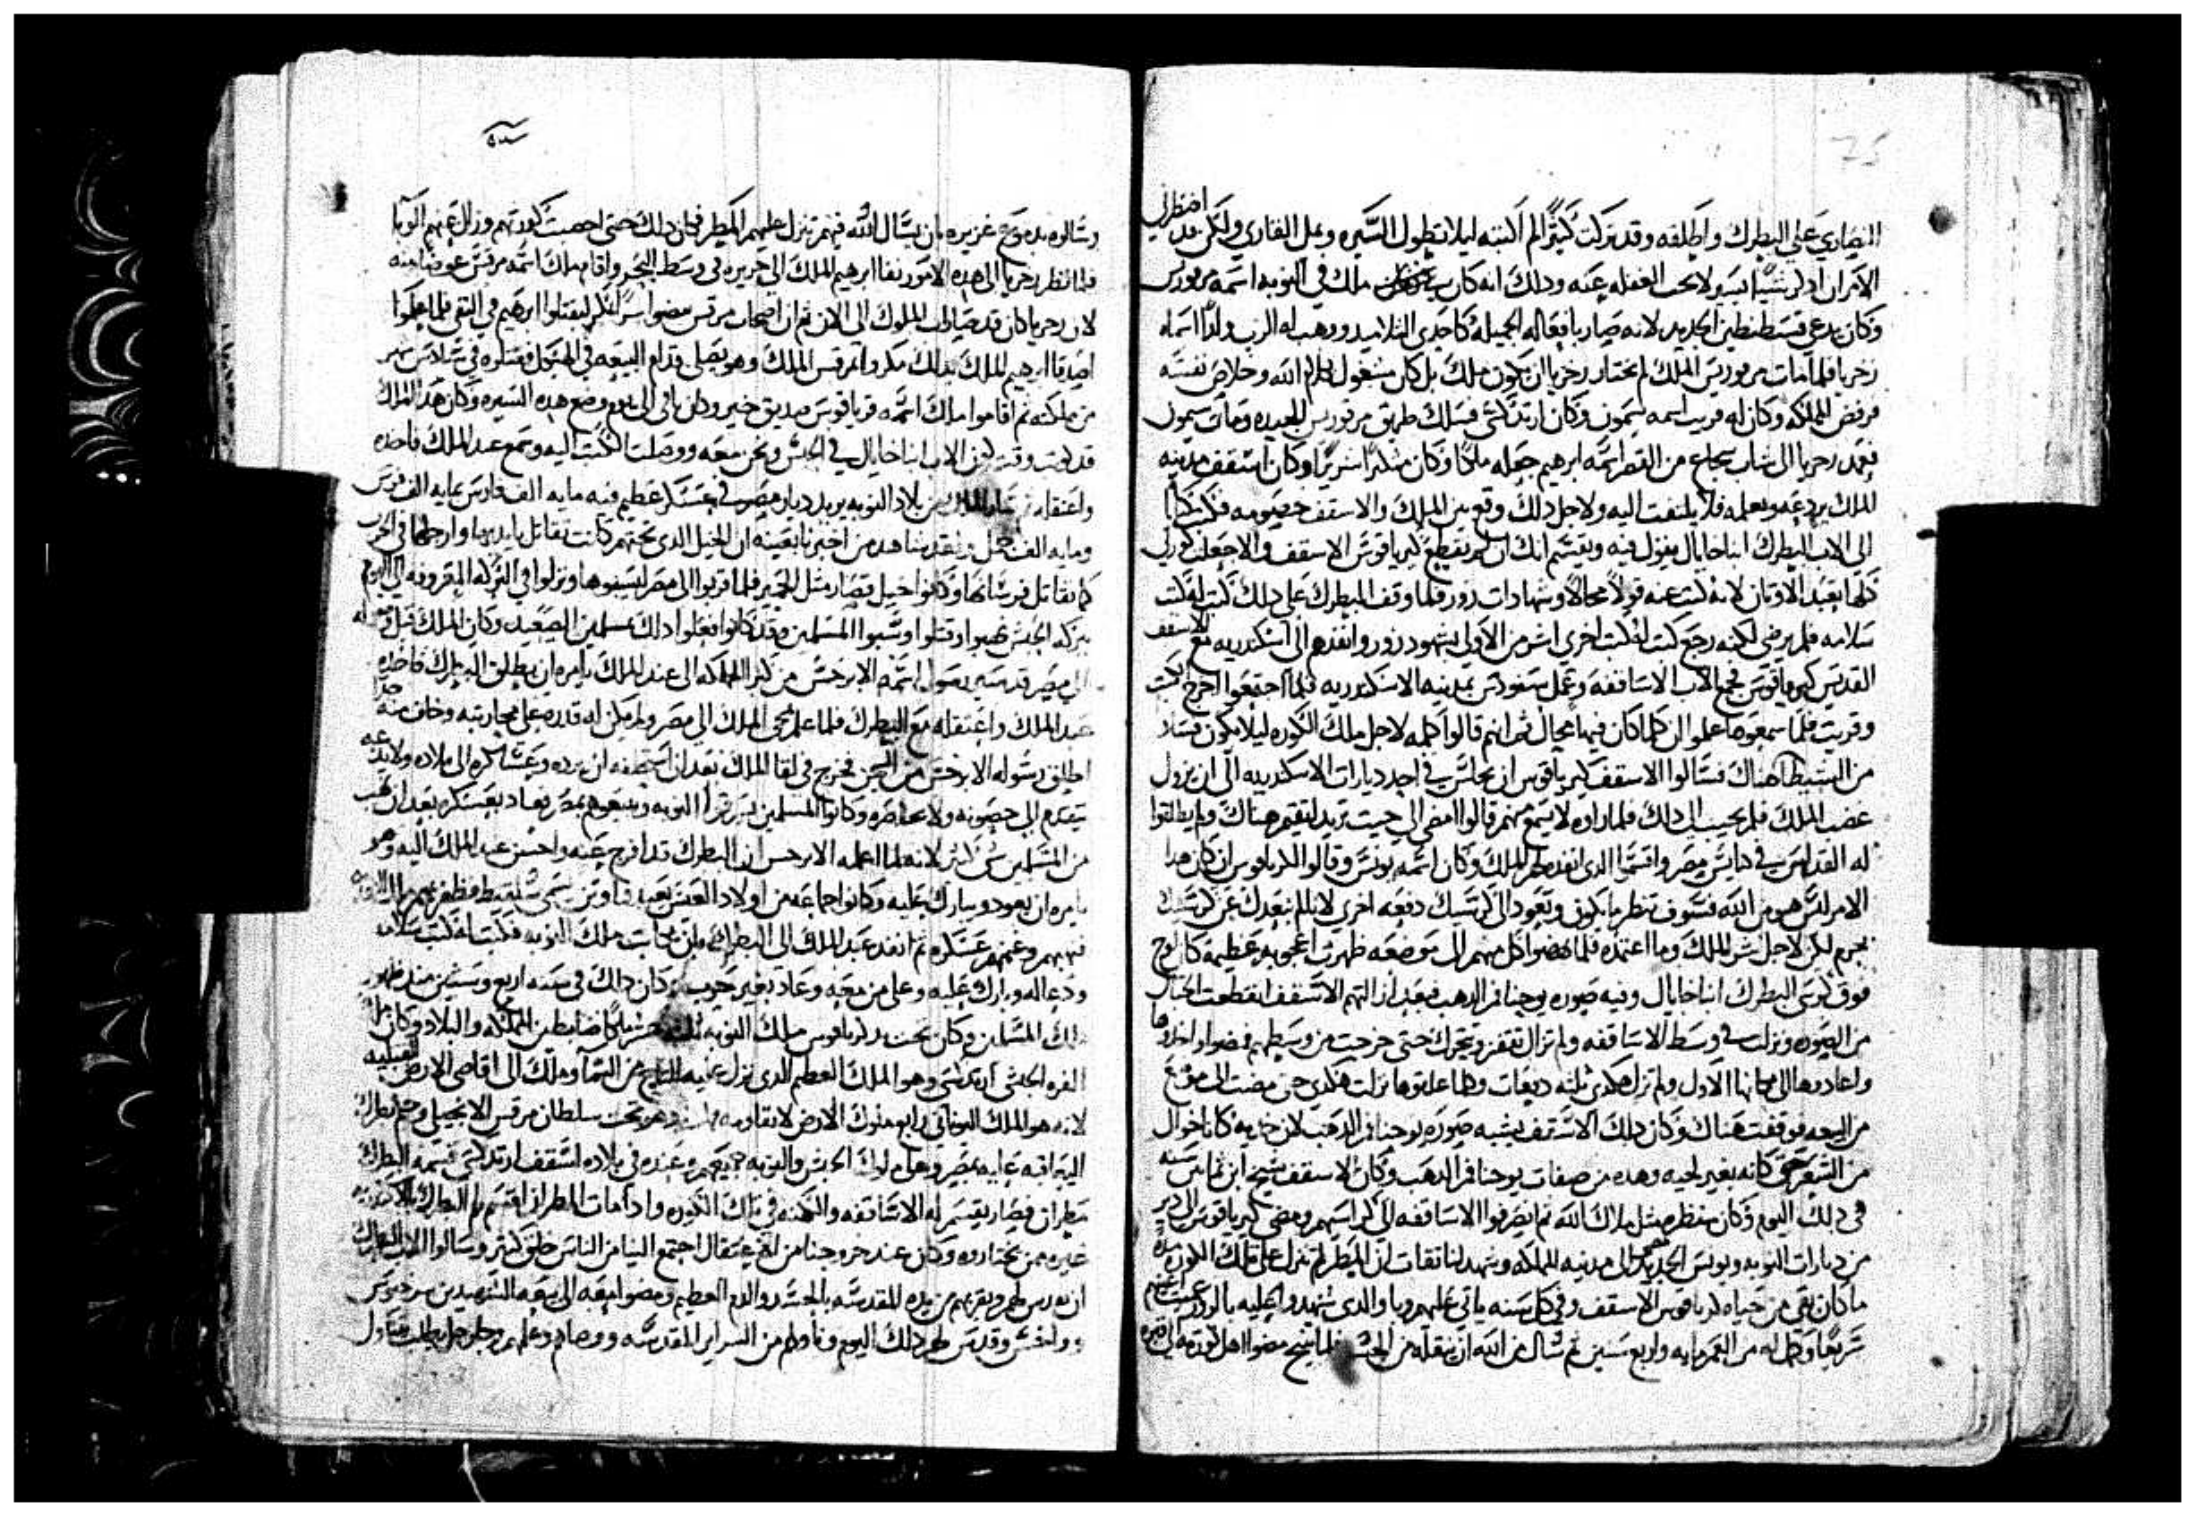 النصاري علي البطرك واطلقه وقد تركت كثيرًا لم اكتبه ليلا تطول السيره ويمل القاري ولكن قد اضطرني
الامر ان ادكر شيًا يسير ولا يجب الغفله عنه ودلك انه كان ملك في النوبه اسمه مرقورس
وكان يدعي قسطنطين الجديد لانه صار بافعاله الجميله كاحدي التلاميد ووهب له الرب ولدًا اسماه
زخريا فلما مات مرقوريس الملك لم يختار زخريا ان يكون ملك بل كان مشغول بكلام الله وخلاص نفسه
فرفض المملكه وكان له قريب اسمه سيمون وكان ارتدكسي فسلك طريق مرقورس الجيده ومات سيمون
فعمد زخريا الي شاب شجاع من القصر اسمه ابرهيم جعله ملكًا وكان متكبرًا شريرًا وكان اسقف مدينه
الملك يردعه ويعلمه فلا يلتفت اليه ولاجل دلك وقع بين الملك والاسقف خصومه فكتب كتابًا
الي الاب البطرك انبا خايال يقول فيه ويقسم انك ان لم تقطع كرياقوس الاسقف والا جعلت كورتي
كلها تعبد الاوتان لانه كتب عنه قولًا محالًا وشهادات زور فلما وقف البطرك علي دلك كتب له كتب
سلامه فلم يرضي لكنه رجع كتب له كتب اخري اشر من الاولي بشهود زور وانفدهم الي اسكندريه مع الاسقف
القديس كرياقوس فجمع الاب الاساقفه وعمل سنودس بمدينه الاسكندريه فلما اجتمعوا اخرج الكتب
وقريت فلما سمعوها علموا ان كلما كان فيها محال ثم انهم قالوا كلمه لاجل ملك الكوره ليلا يكون فسلا
من الشيطان هناك فسالوا الاسقف كرياقوس ان يجلس في احد ديارات الاسكندريه الي ان يزول
غضب الملك فلم يجيب الي دلك فلما راوه لا يسمع منهم قالوا امضي الي حيت تريد لتقيم هناك ولم يطلقوا
له القداس في كنايس مصر واقسموا الدي انفده لهم الملك وكان اسمه يونس وقالوا لكرياقوس ان كان هدا
الامر ليس هو من الله فسوف تنظر ما يكون وتعود الي كرسيك دفعه اخري لاننا لم نبعدك عن كرسيك
بجرم لكن لاجل شر الملك وما اعتمده فلما مضوا كل منهم الي موضعه ظهرت اعجوبه عظيمه كان لوح
فوق كرسي البطرك انبا خايال وفيه صوره يوحنا فم الدهب فبعد ان اتهم الاسقف انقطعت الحبال
من الصوره ونزلت في وسط الاساقفه ولم تزال تقفز وتتحرك حتي خرجت من وسطهم فمضوا واخدوها
واعادوها الي مكانها الاول ولم تزل هكدي ثلثه دفعات وكلما علقوها نزلت هكدي حتي مضت الي موضع
من البيعه فوقفت هناك وكان دلك الاسقف يشبه صورة يوحنا فم الدهب لان خديه كانا خوال
من الشعر حتي كانه بغير لحيه وهده من صفات يوحنا فم الدهب وكان الاسقف شيخ ابن ثمانين سنه
في دلك اليوم وكان منظره مثل ملاك الله ثم انصرفوا الاساقفه الي كراسيهم ومضي كرياقوس الي دير
من ديارات النوبه ويونس الجديد الي مدينه المملكه وشهد لنا تقات ان المطر لم تنزل علي تلك الكوره مده
ما كان بقي من حياه كرياقوس الاسقف وفي كل سنه ياتي عليهم وبا والدي شهدوا عليه بالزور
سريعًا وكمل له من العمر مايه واربع سنين ثم سال من الله ان ينقله من الجسد فلما تنيح مضوا اهل كورته الي قبره
وسالوه بدموع غزيره بان يسال الله فيهم تنزل عليهم المطر فكان دلك حتي اخصبت كورتهم وزال عنهم الوبا
فلما نظر زخريا الي هده الامور نفا ابرهيم الملك الي جزيره في وسط البحر واقام ملك اسمه مرقس عوضًا منه
لان زخريا كان قد صار اب الملوك الي الان ثم ان اصحاب مرقس مضوا سرًا ليقتلوا ابرهيم في النفي فلما علموا
اصدقا ابرهيم الملك بدلك مكروا بمرقس الملك وهو يصلي قدام البيعه في الهيكل فقتلوه في سادس شهر
من مملكته ثم اقاموا ملك اسمه قرياقوس صديق خير وكان باقي الي يوم وضع هده السيره وكان هدا الملك
قد كتب وقت كون الاب انبا خايال في الحبس ونحن معه ووصلت الكتب اليه وسمع عبد الملك فاخده
واعتقله فسار الملك من بلاد النوبه يريد ديار مصر في عسكر عظيم فيه مايه الف فارس بمايه الف فرس
ومايه الف جمل ولقد شاهد من اخبرنا بعينه ان الخيل الدي تحتهم كانت تقاتل بايديها وارجلها في الحرب
كما تقاتل فرسانها وكانوا خيل قصار مثل الحمير فلما قربوا الي مصر ليسبوها ونزلوا في البركه المعروفه الي اليوم
ببركه الحبش نهبوا وقتلوا وسبوا المسلمين وقد كانوا فعلوا دلك بمسلمين الصعيد وكان الملك قبل وصوله
الي مصر قد سير رسول اسمه الابرخس من كبرا المملكه الي عبد الملك يامره ان يطلق البطرك فاخده
عبد الملك واعتقله مع البطرك فلما علم بمجي الملك الي مصر ولم يكن له قدره علي محاربته وخاف منه جدا
اطلق رسوله الابرخس من السجن فخرج في لقا الملك بعد ان استحلفه ان يرده وعساكره الي بلاده ولا يدعه
يتقدم الي حصونه ولا يحاصره وكانوا المسلمين يسرقوا النوبه ويبيعوهم بمصر فعاد بعسكره بعد ان نهب
من المسلمين شي كثير لانه لما اعلمه الابرخس ان البطرك قد افرج عنه واحسن عبد الملك اليه وهو
يامره ان يعود ويبارك عليه وكانوا جماعه من اولاد
نهبهم وغنمهم عسكره ثم انفد عبد الملك الي البطرك وان يكاتب ملك النوبه فكتب له كتب سلامه
ودعا له وبارك عليه وعلي من معه وعاد بغير حرب وكان دلك في سنه اربع وستين مند ظهور
ملك المسلمين وكان تحت يد كرياقوس ملك النوبه ثلثه عشر ملكًا ضابطين المملكه والبلاد وكان ملك
المقره الحبشي ارتدكسي وهو الملك العظيم الدي نزل عليه التاج من السما وملك الي اقاصي الارض القبليه
لانه هو الملك اليوناني رابع ملوك الارض لا يقاومه وهو تحت سلطان مرقس الانجيلي وحكم بطرك
اليعاقبه عليه بمصر وعلي ملوك الحبش والنوبه جميعهم وعنده في بلاده اسقف ارتدكسي قسمه البطرك
مطران فصار يقسم له الاساقفه والكهنه في تلك الكوره وادا مات المطران اقسم لهم البطرك
غيره ممن يختاروه وكان عند خروجنا من الاعتقال اجتمع الينا من الناس خلق كثير وسالوا الاب البطرك
ان يقدس لهم ويقربهم من يده المقدسه بالجسد والدم العظيم ومضوا معه الي بيعه الشهيدين سرجيوس
وواخس وقدس لهم دلك اليوم وناولهم من السراير المقدسه ووصاهم وعلمهم وجا رجل يطلب يتناول